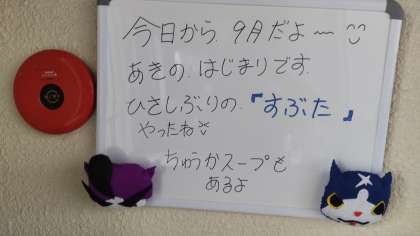 今日から、9月だよ〜
あきの、はじまりです。
ひさしぶりの、『すぶた』
やったね
ちゅうかスープも
あるよ